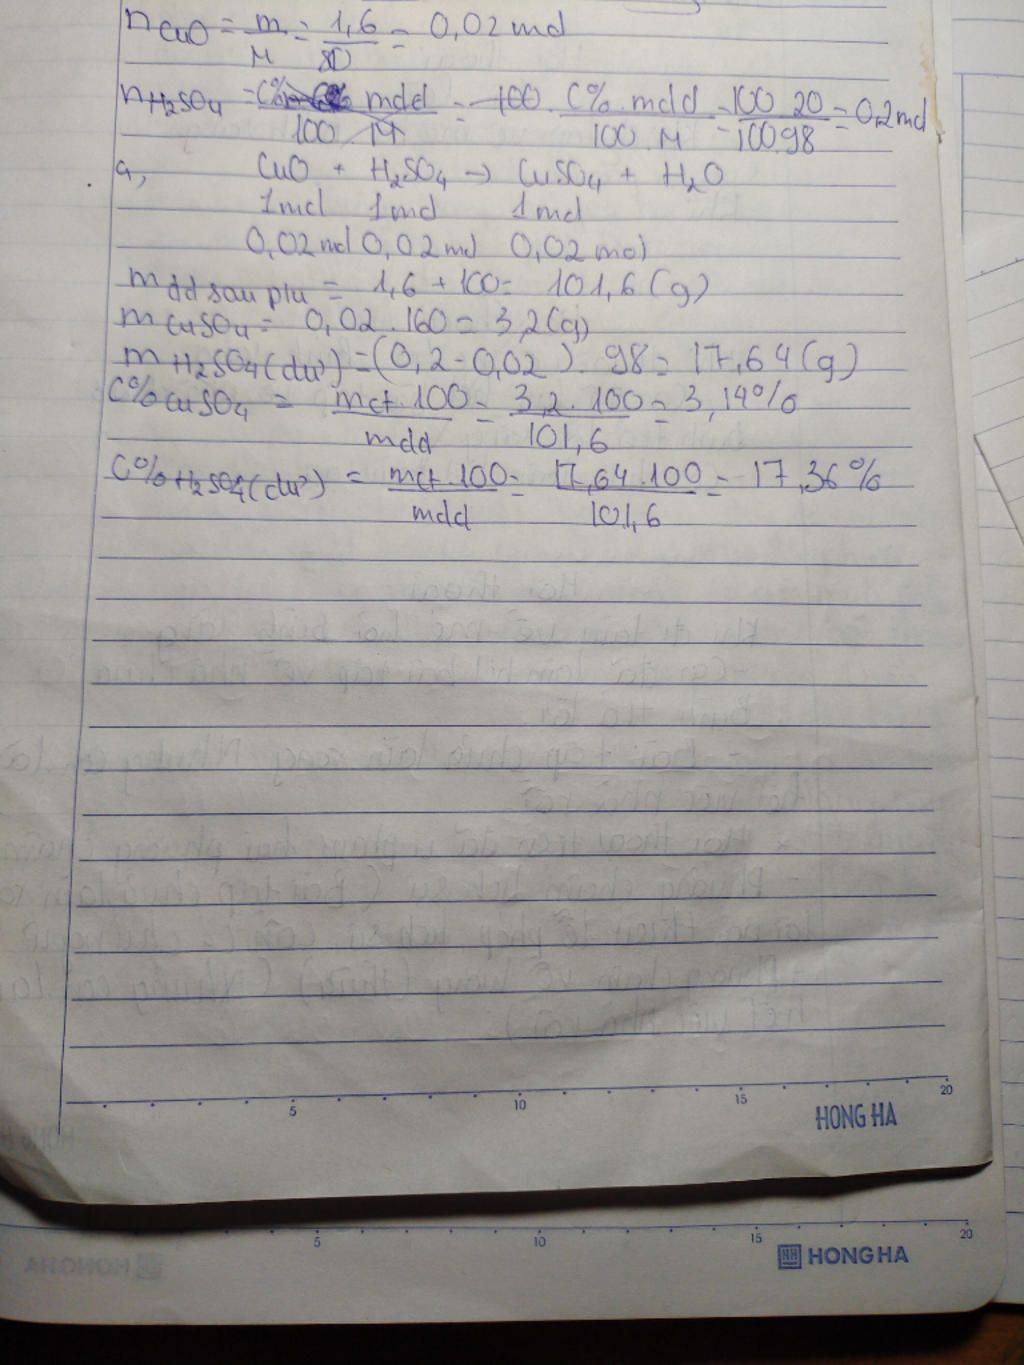 nCuO = m/M = 1,6/80 = 0,02 mol
nH2SO4 = C% mdd/100 M = 100. C%.mdd/100.M = 100.20/100.98 = 0,2 mol
a, CuO + H2SO4 → CuSO4 + H2O
1mol 1mol 1mol
0,02 mol 0,02 mol 0,02 mol
mdd sau pứ = 1,6 + 100 = 101,6 (g)
mCuSO4 = 0,02.160 = 3,2(g)
mH2SO4(dư) = (0,2-0,02). 98 = 17,64(g)
C% CuSO4 = mct.100/mdd = 3,2.100/101,6 = 3,14%
C% H2SO4(dư) = mct.100/mdd = 17,64.100/101,6 = 17,36%
5 10 15 20
HONG HA
5 10 15 20
HONG HA